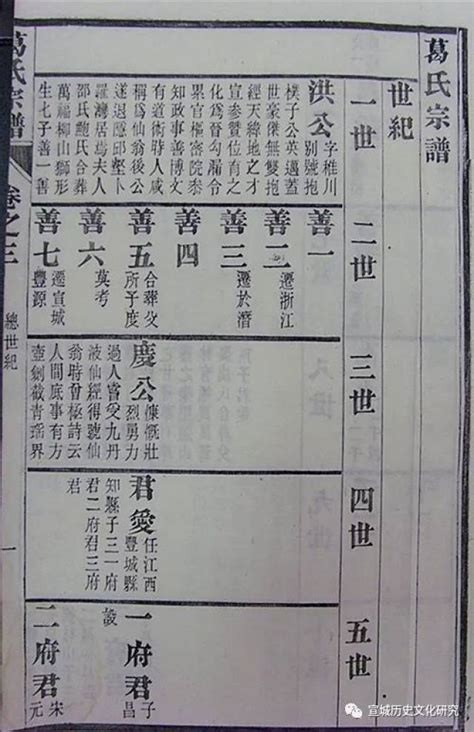 葛氏宗譜
世紀
一世
二世
三世
四世
五世
洪公
字椎川
別號抱
樸子公英邁蓋
世豪傑無雙抱
經天緯地之才
宣參贊位育之
化為晉勾漏令
累官樞密院叅
知政事善博文
有道術時人咸
稱為仙翁後公
遂退隱邱壑卜
羅灣居焉夫人
邵氏鮑氏合葬
萬福柳山獅形
生七子善一善
善一
善二
遷浙江
善三
遷於潛
善四
善五
合葬父
所子度
善六
莫考
善七
遷宣城
豐源
慶公
慷慨壯
烈勇力
過人嘗受九丹
液仙經得號仙
翁時曾極詩云
人間底事有方
壺劍截青瑤界
君愛
任江西
豐城縣
知縣子三一府
君二府君三府
君
一府君
子
昌
二府君
宋
元
葛氏宗譜
卷之三
總世紀
一
宣城历史文化研究